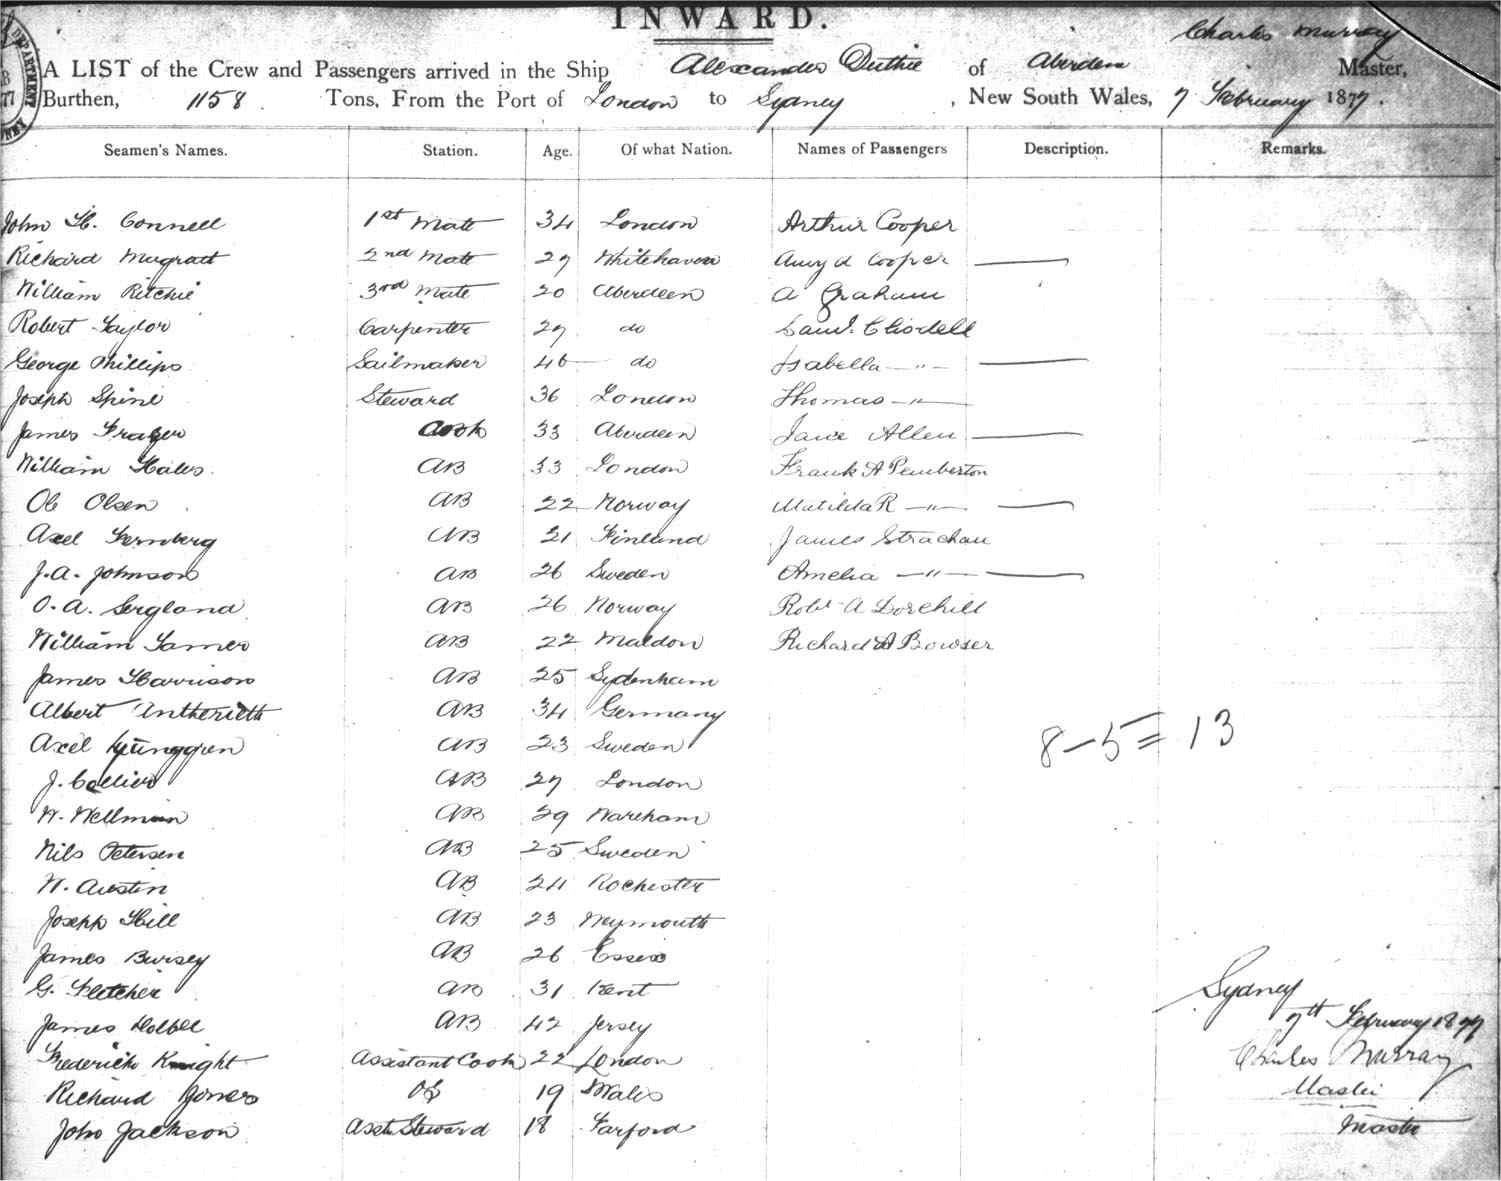 INWARD.
Charles Murray
A LIST of the Crew and Passengers arrived in the Ship Alexander Duthie of Aberdeen Master,
Burthen, 1158. Tons, From the Port of London to Sydney, New South Wales, 7 February 1877.
Seamen's Names. Station. Age. Of what Nation. Names of Passengers Description. Remarks.
John H. Connell 1st Mate 34 London Arthur Cooper
Richard Mugratt 2nd Mate 27 Whitehaven Amy d Cooper —
William Ritchie 3rd Mate 20 Aberdeen A Graham
Robert Taylor Carpenter 27 do Saml.
George Phillips Sailmaker 46 do Isabella — " —
Joseph Spine Steward 36 London Thomas — " —
James Frazer Cook 33 Aberdeen Jane Allen —
William Hales. AB 33 London Frank A Pemberton
Ole Olsen AB 22 Norway Matilda R — " — —
Axel Fernberg AB 21 Finland James Strachan
J. A. Johnson AB 26 Sweden Amelia — " — —
O. A. AB 26 Norway Robt A Dorehill
William AB 22 Maldon Richard A Bowser
James Harrison AB 25 Sydenham
Albert AB 34 Germany
Axel AB 23 Sweden
8 – 5 = 13
J. Collier AB 27 London
W. Wellman AB 29 Wareham
Nils Petersen AB 25 Sweden
W. Austin AB 24 Rochester
Joseph Hill AB 23 Weymouth
James Bursey AB 26 Essex
G. Fletcher AB 31 Kent
Sydney
James AB 42 Jersey
7th February 1877
Frederick Knight Assistant Cook 22 London
Charles Murray
Richard Jones OS 19 Wales
Master
John Jackson Asst Steward 18
Master